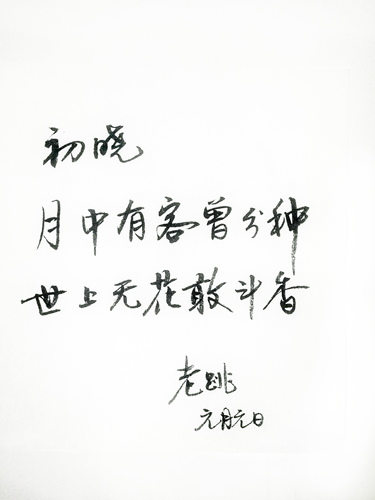 初晓
月中有客曾分种
世上无花敢斗香
老跳
元月元日